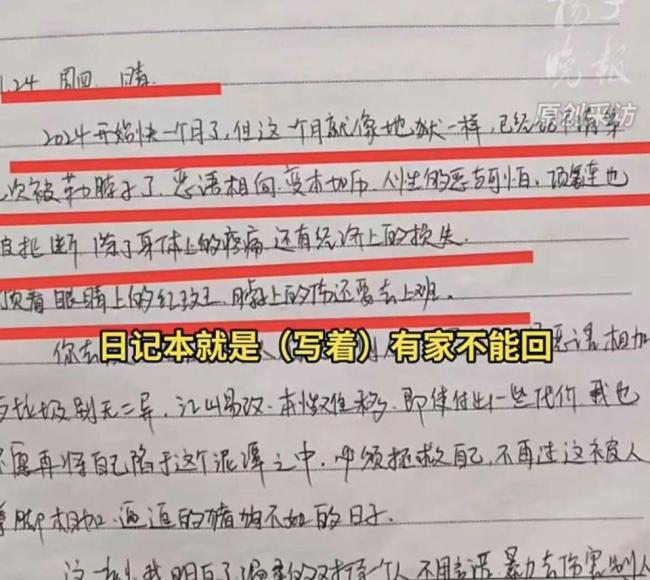 扬子
晚报
原创采访
1.24 周四 晴
2024开始快一个月了,但这一个月就像地狱一样,已经
次被勒脖子了,恶语相向,变本加厉,人性的恶真可怕,项链也
被扯断,除了身体上的疼痛,还有经济上的损失
顶着眼睛上的红斑,脖子上的伤还要去上班。
日记本就是(写着)有家不能回
你去 恶语相加
与垃圾别无二异,江山易改,本性难移,即使付出一些代价,我也
不愿再将自己陷于这个泥潭之中,必须拯救自己,不再过这被人
拳脚相加,逼迫的猪狗不如的日子。
我明白了 对待一个人,不用言语、暴力去伤害别人